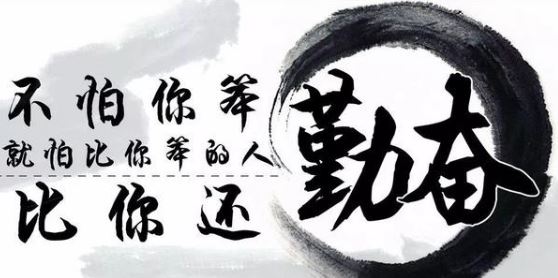 不怕你笨
就怕比你笨的人
比你还
勤奋